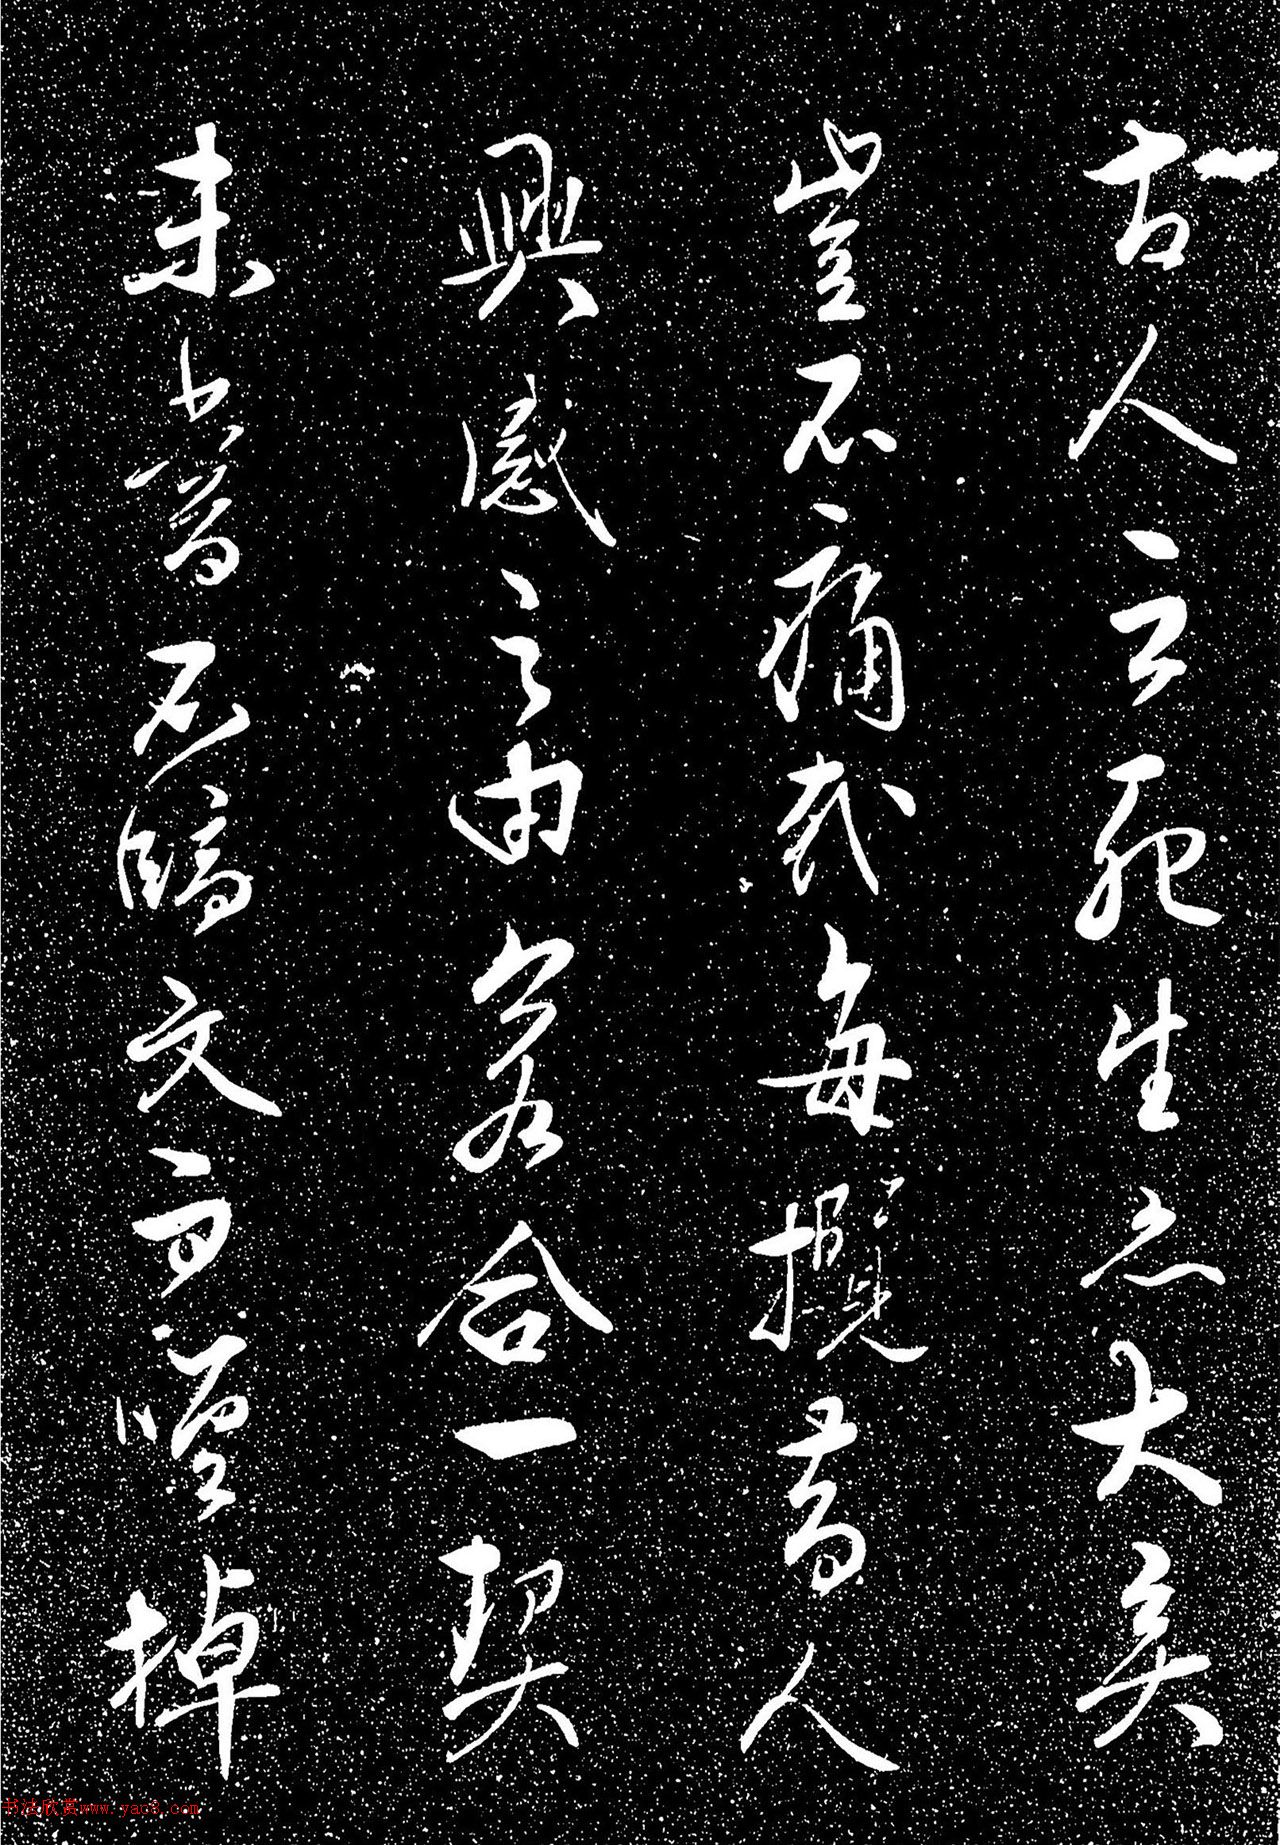 古人云死生亦大矣
豈不痛哉每攬昔人
興感之由若合一契
未嘗不臨文而嗟掉
书法欣赏www.yac8.com